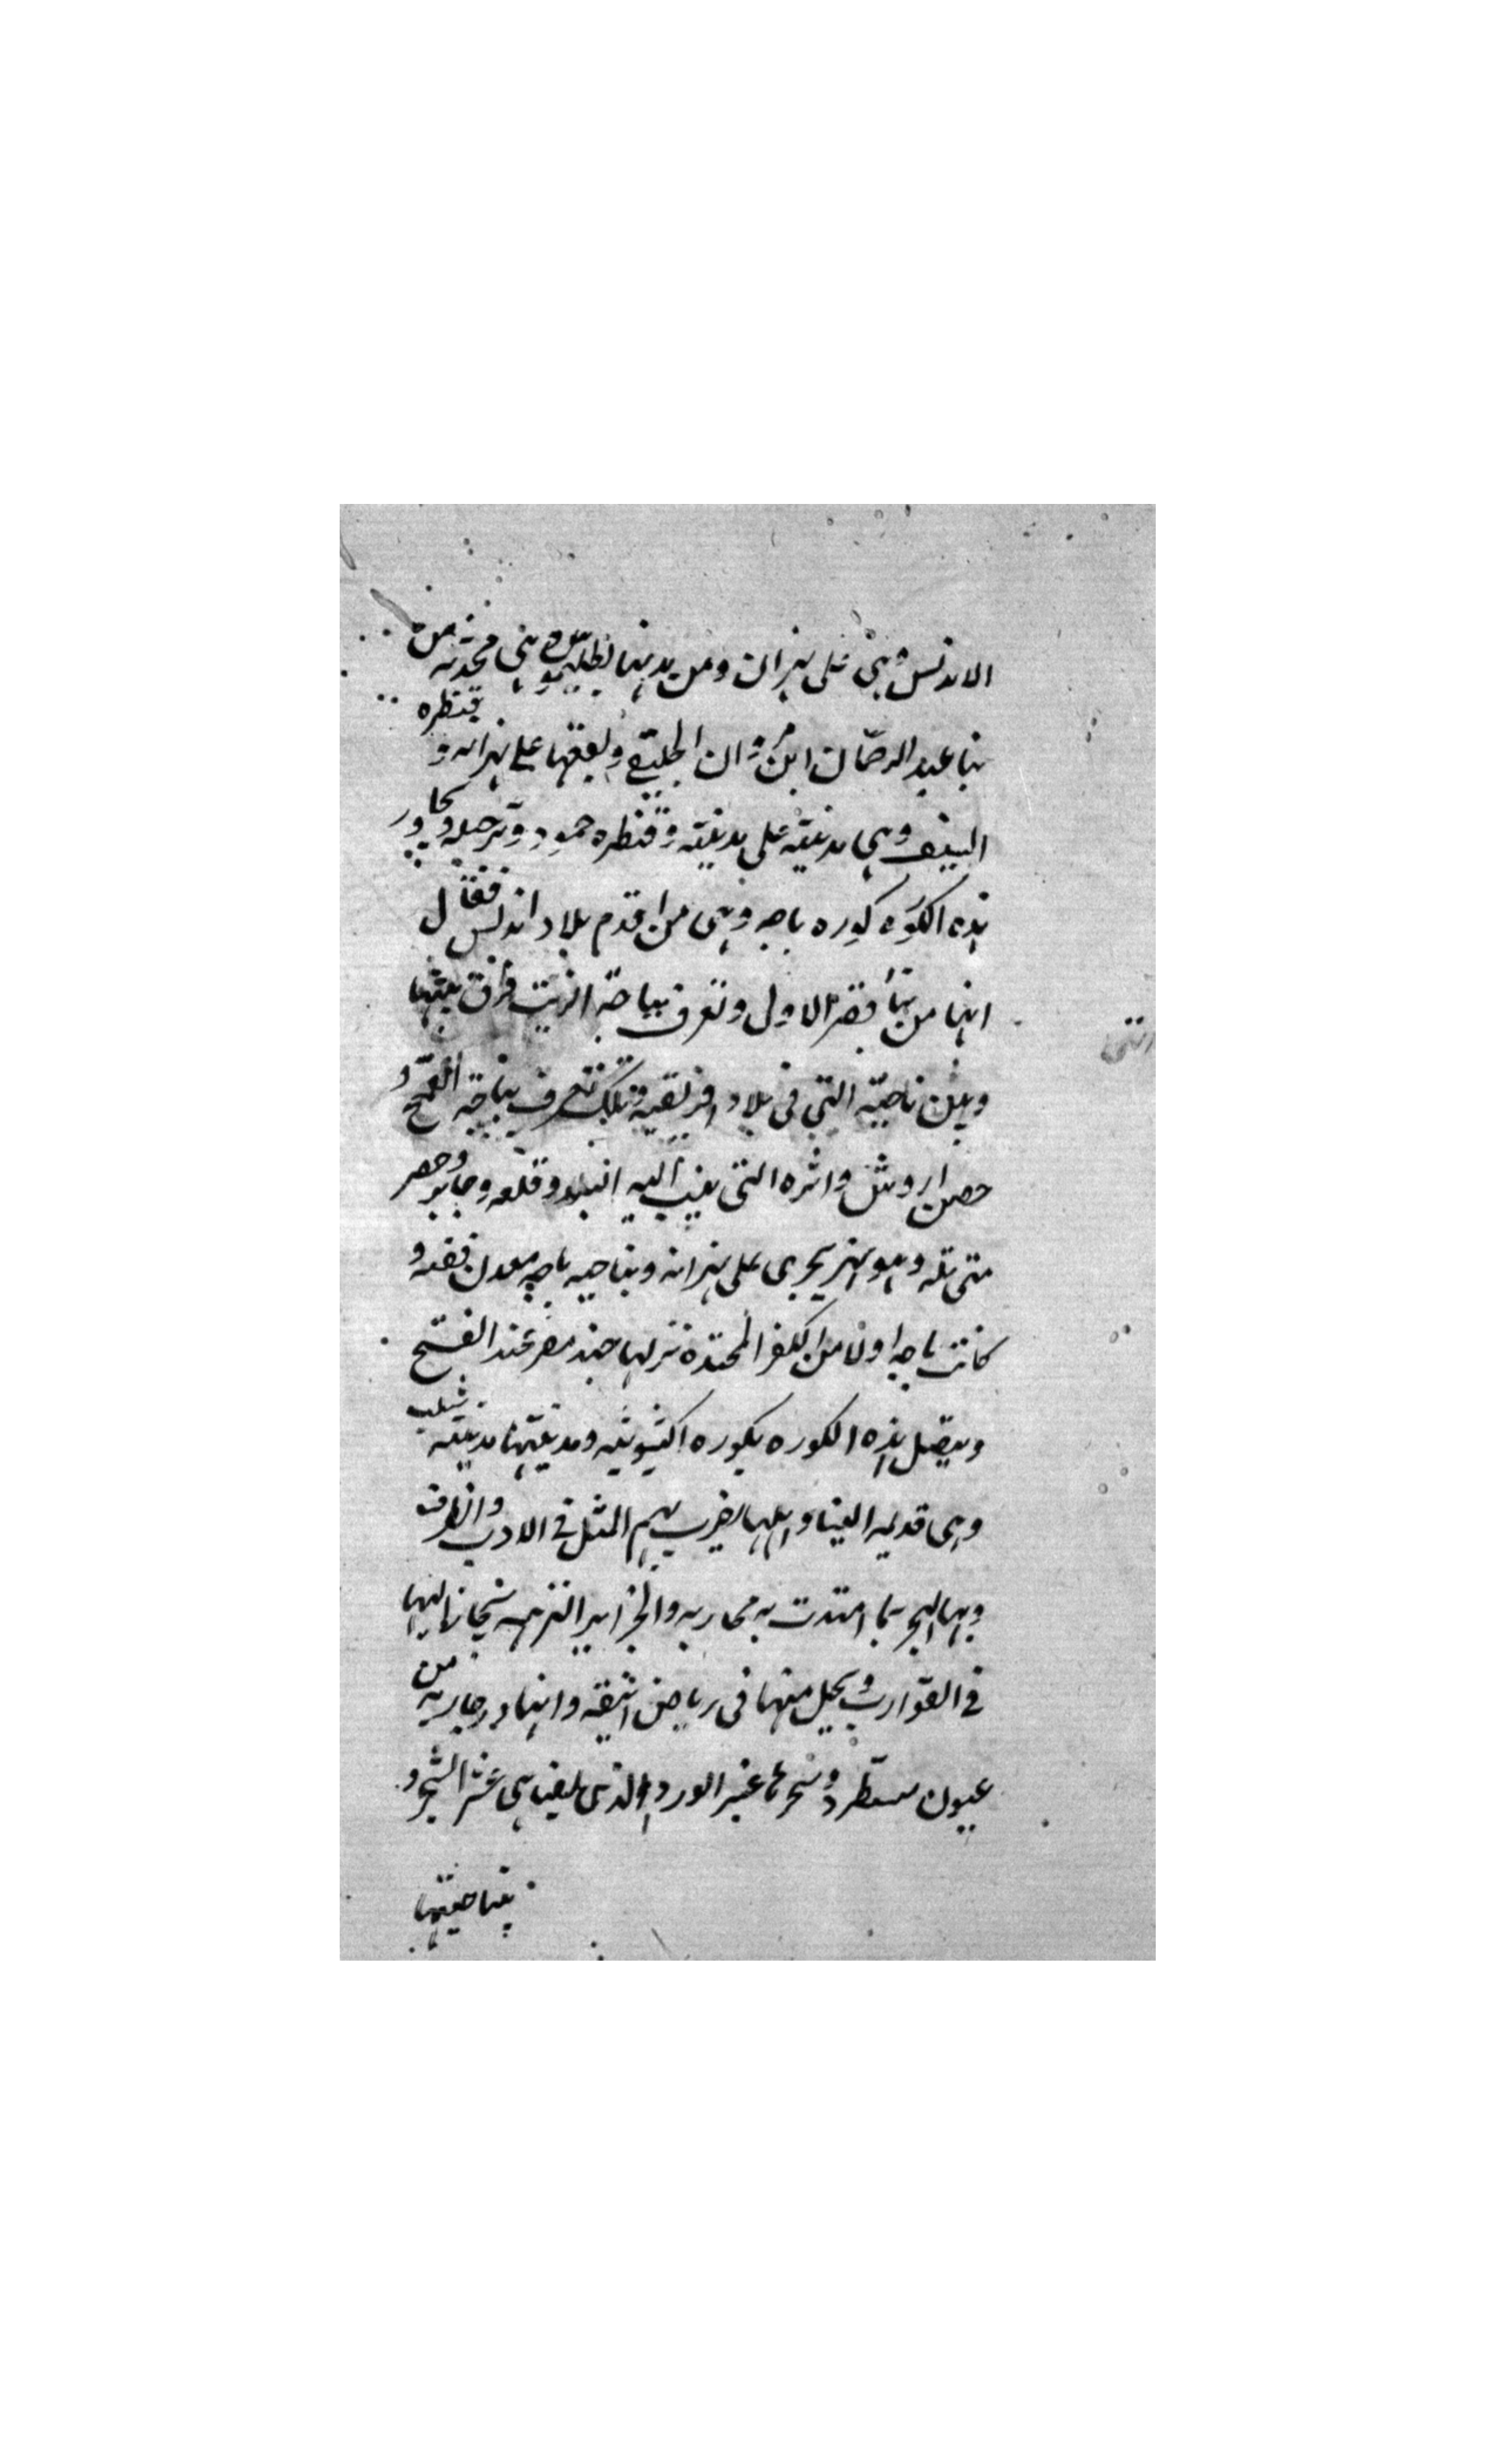 الاندلس وهى على نهرانه ومن مدنها بطليوس وهى محدثه من
بنا عبد الرحمان ابن مروان الجليقى وبعضها على نهرانه وقنطره
السيف وهى مدينته على مدينته وقنطره حمود وترجيله وتجاور
هذه الكوره كوره باجه وهى من اقدم بلاد اندلس فقال
انها من بنا قيصر الاول وتعرف بباجة الزيت فرق بينها
وبين ناحيته التى فى بلاد افريقيه وتلك تعرف بباجة القمح و
حصن اروش واثره التى ينسب اليه وقلعه وحصر
متى تله وهو نهر يجرى على نهرانه وبناحيه باجه معدن فضه و
كانت باجه اولا من الكفر المحتده نزلها جند مصر عند الفتح
ويتصل هذه الكوره بكوره اكشونبه ومدينتها مدينته شلب
وهى قديمه البنا واهلها يضرب بهم المثل فى الادب والظرف
وبها البحر بما امتدت به مجاربه والجزاير النزهه اليها
فى القوارب ويحيل منها فى رياض انيقه وانهار جاريه من
عيون ستطرد وشجرها عنبر الورد الذى بيضا هى عشر الشجر و
بناحيتها